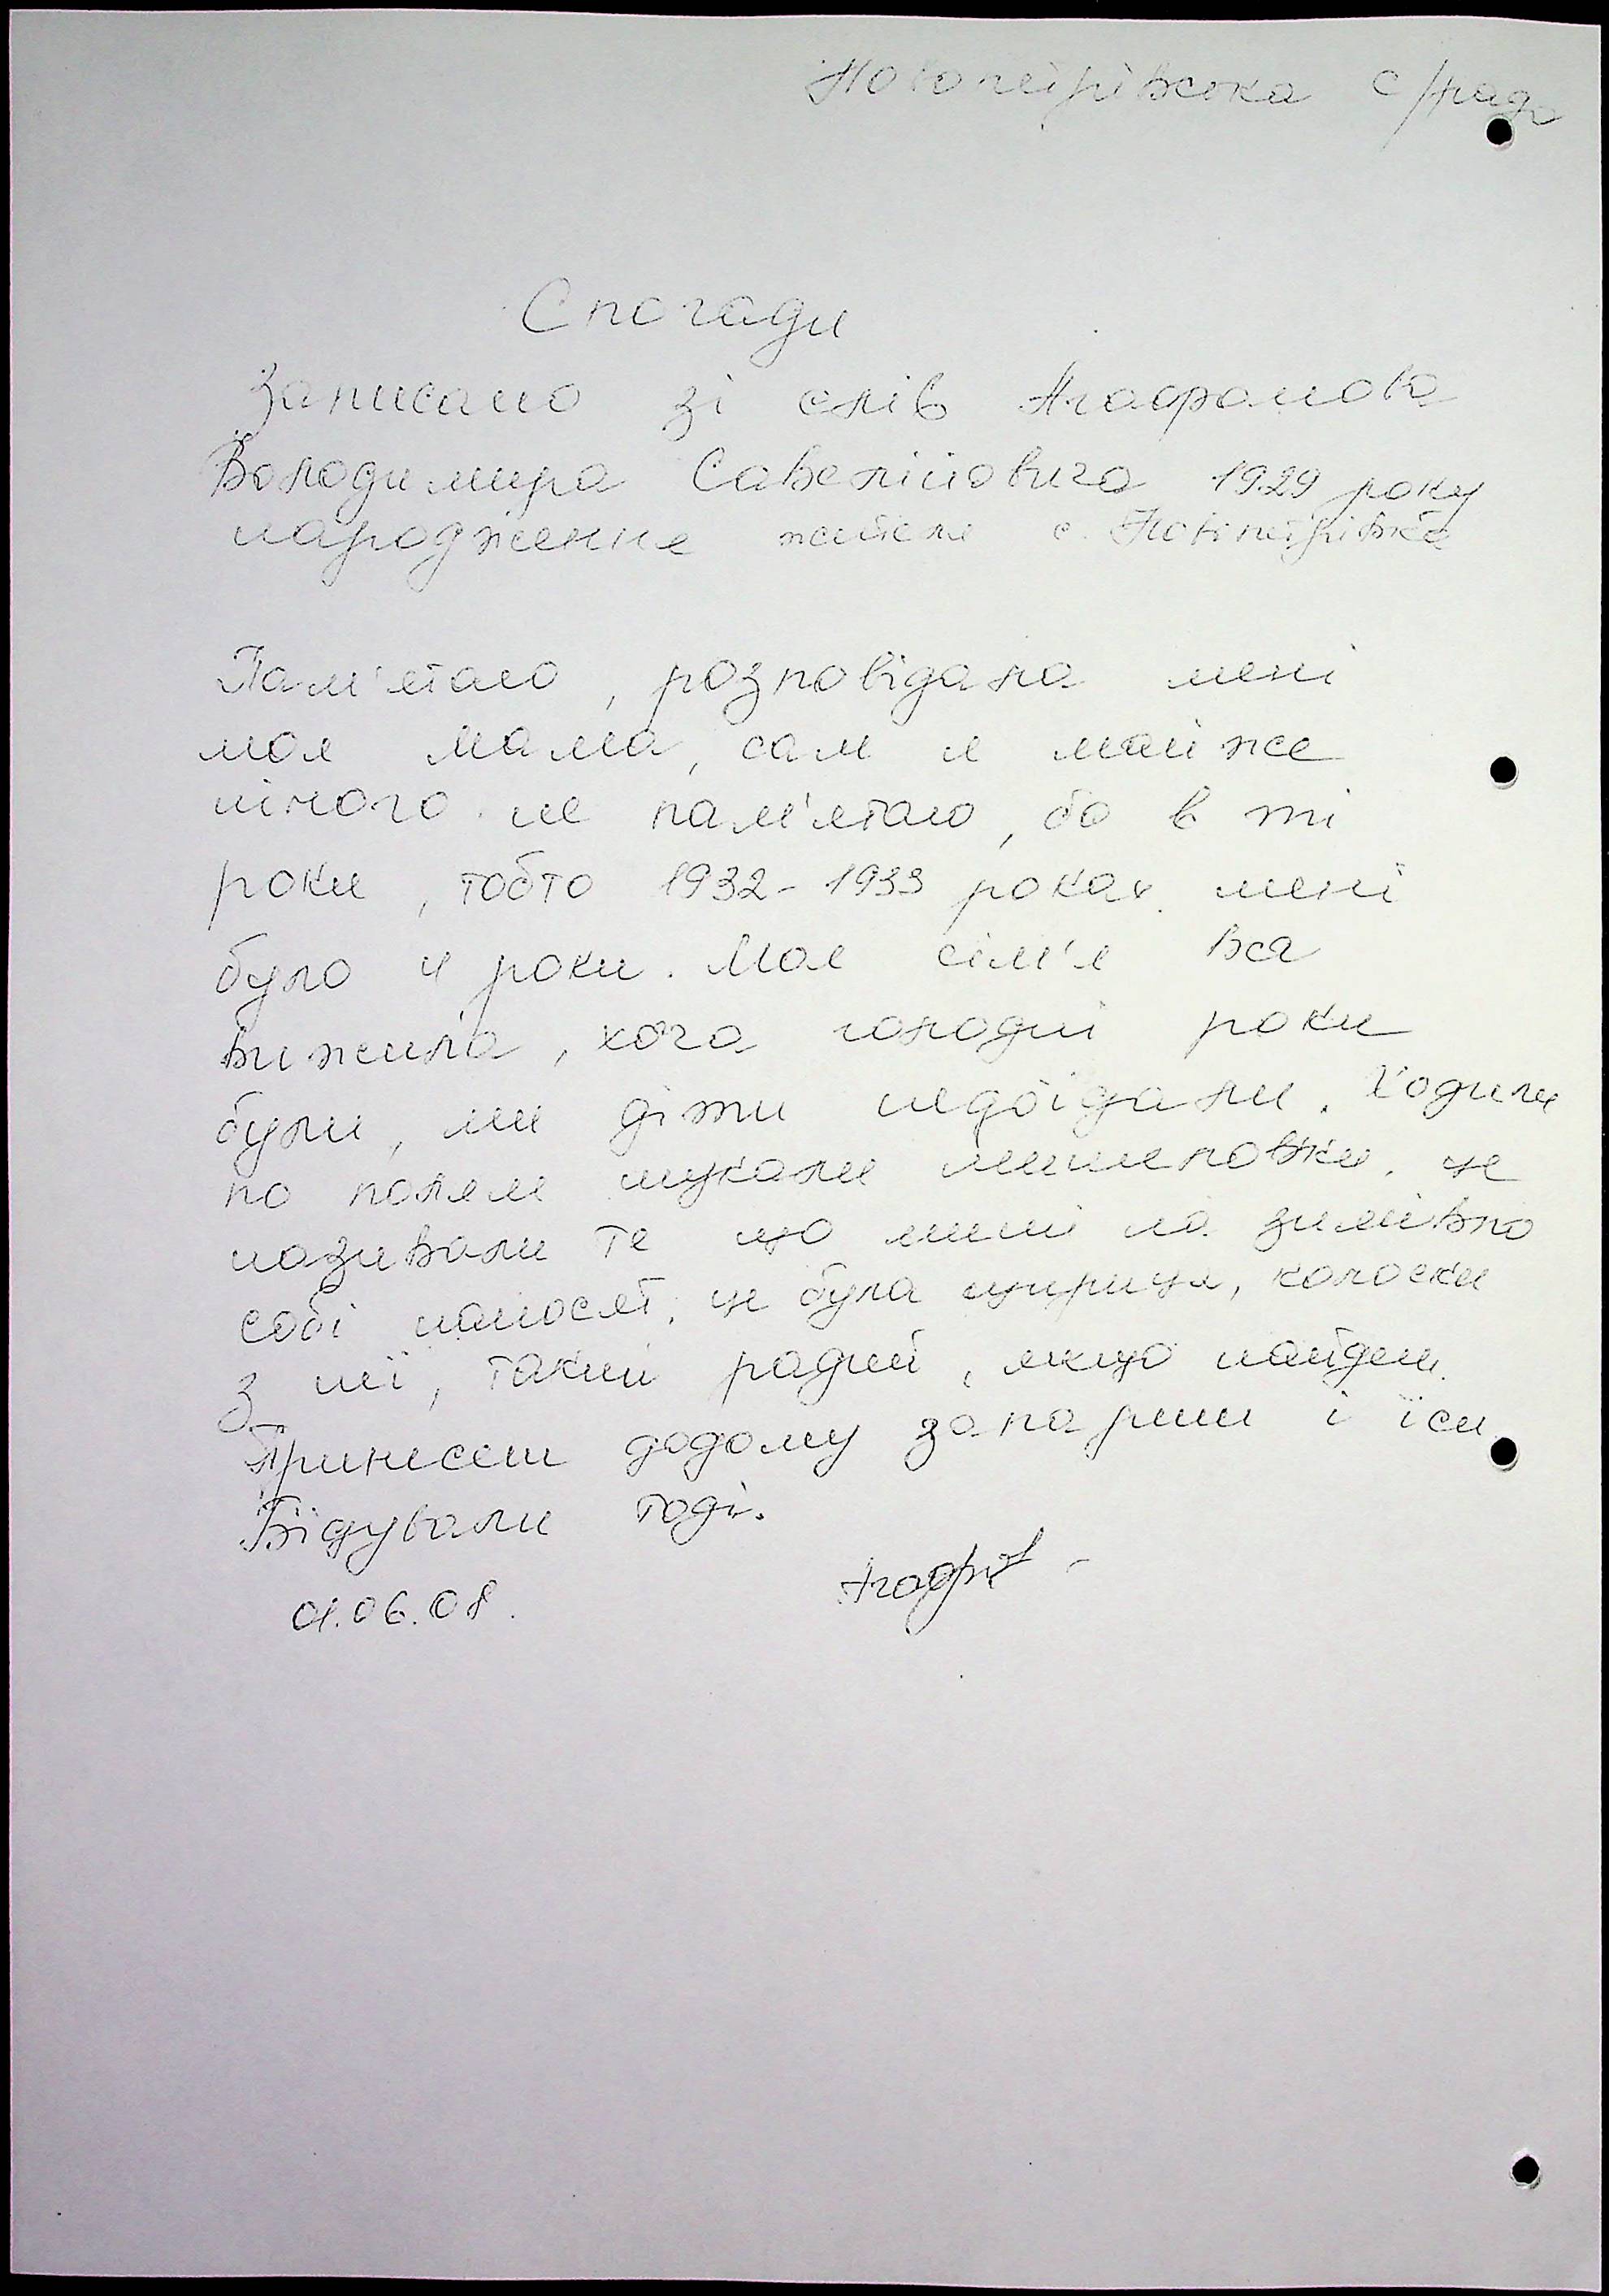 Новопетрівська с/рада
Спогади
Записано зі слів Агафонова
Володимира Савелійовича 1929 року
народження жителя с. Новопетрівка
Пам'ятаю, розповідала мені
моя мама, сам я майже
нічого не пам'ятаю, бо в ті
роки, тобто 1932-1933 роках мені
було 4 роки. Моя сім'я вся
вижила, хоча голодні роки
були, ми діти недоїдали. Ходили
по полям шукали мишиловки, це
називали те що миші на зимівлю
собі наносят, це була щириця, колоски
з неї, такий радий, якщо найдеш.
Принесеш додому запариш і їси.
Бідували тоді.
01.06.08.